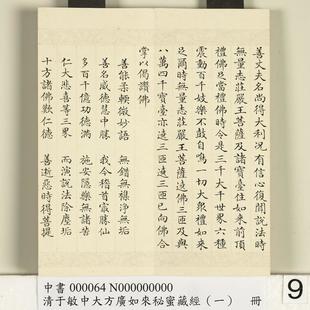 善丈夫名尚得大利況有信心復聞說法時
無量志莊嚴王菩薩及諸寶臺住如來前頂
禮佛足當禮佛時令是三千大千世界六種
震動百千妓樂不鼓自鳴一切大衆禮如來
足爾時無量志莊嚴王菩薩遶佛三匝及與
八萬四千寶臺亦遶三匝遶三匝已向佛合
掌以偈讚佛
善能柔輭微妙語　無錯無穢淨無垢
善名威德慧中勝　我今稽首最勝仙
多百千億功德滿　施安隱樂無諸苦
仁大悲喜等三界　而演說法除塵垢
十方諸佛歎仁德　善逝惡時得菩提
中書 000064 N000000000
清于敏中大方廣如來秘蜜藏經（一）　冊
9